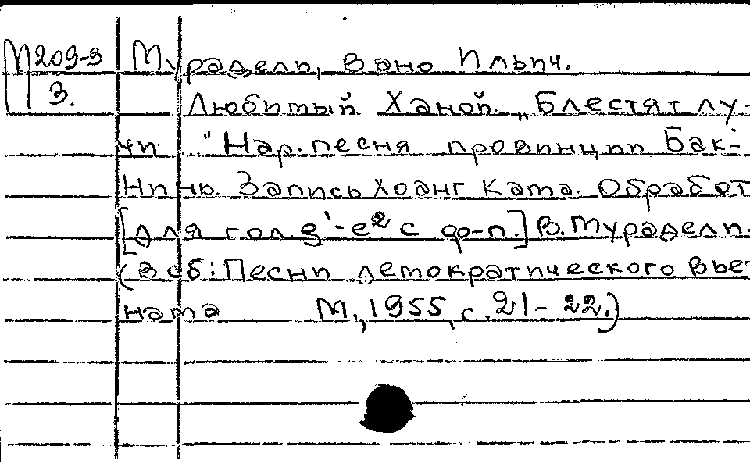 М209-3 Мурадели, Вано Ильич.
3. Любимый Ханой. „Блестят лу-
чи" Нар. песня провинции Бак-
Нинь. Запись Хоанг Ката. Обработ
[для гол. g¹-e² с ф-п.] В. Мурадели.
(В сб: Песни демократического Вьет
нама М., 1955, с. 21-22.)